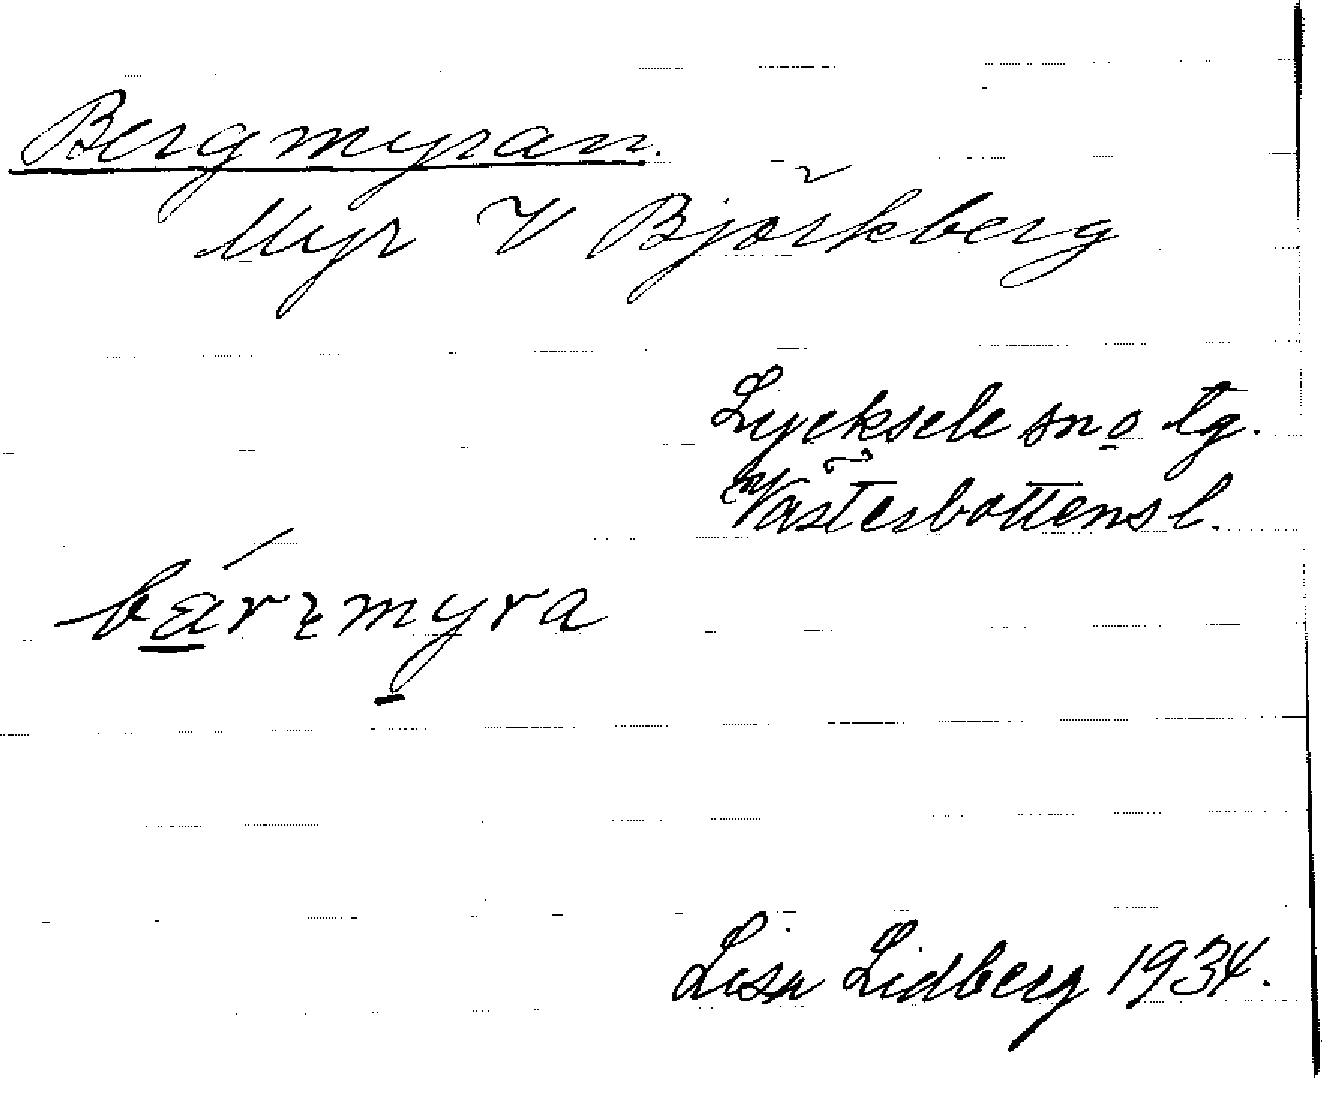 Bergmyran.
Myr V Björkberg
Lycksele sn o tg.
Västerbottens l.
bárɛmyra
Lisa Lidberg 1934.